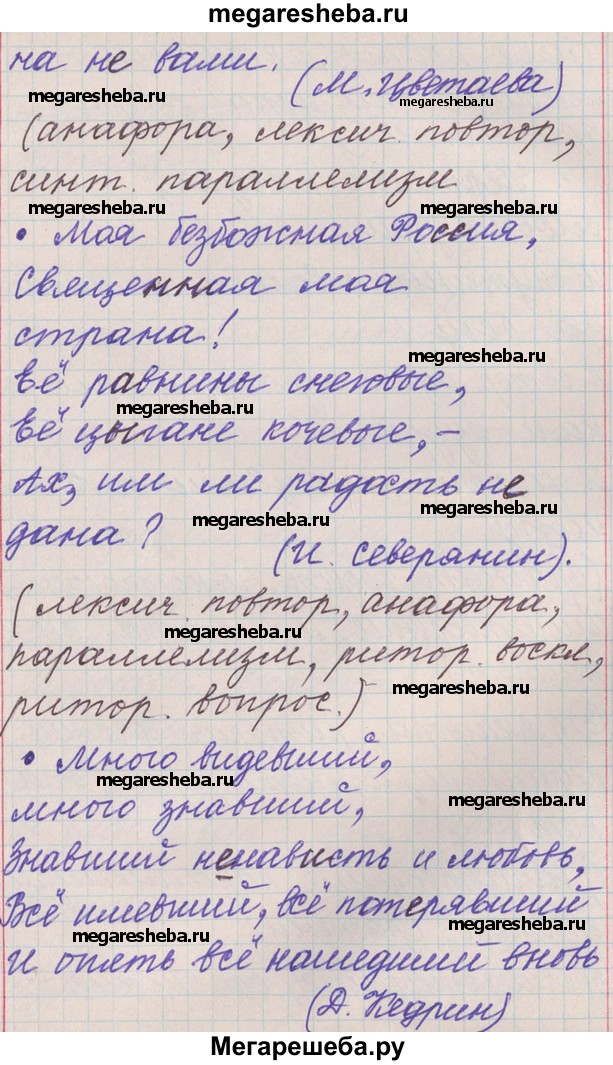 megaresheba.ru
на не вами.
(М. Цветаева)
megaresheba.ru
megaresheba.ru
(анафора, лексич. повтор,
синт. параллелизм
megaresheba.ru
megaresheba.ru
• Моя безбожная Россия,
Священная моя
страна!
megaresheba.ru
Её равнины снеговые,
megaresheba.ru
Её цыгане кочевые, –
Ах, им ли радость не
megaresheba.ru
megaresheba.ru
дана?
(И. Северянин).
(лексич. повтор, анафора,
megaresheba.ru
параллелизм, ритор. воскл.,
megaresheba.ru
ритор. вопрос.)
• Много видевший,
megaresheba.ru
много знавший,
megaresheba.ru
Знавший ненависть и любовь,
Всё имевший, всё потерявший
megaresheba.ru
megaresheba.ru
И опять всё нашедший вновь
(Д. Кедрин)
Мегарешеба.ру